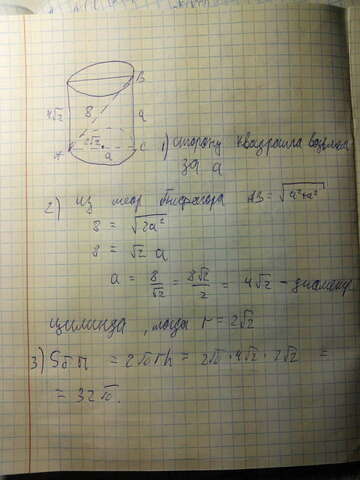 B
4√2 8 a
2√2
A a C
1) сторону квадрата возьмем
за a
2) из теор Пифагора AB = √a²+a²
8 = √2a²
8 = √2 a
a = 8/√2 = 8√2/2 = 4√2 - диаметр
цилиндра, тогда r = 2√2
3) Sбп = 2πrh = 2π·4√2·2√2 =
= 32π.